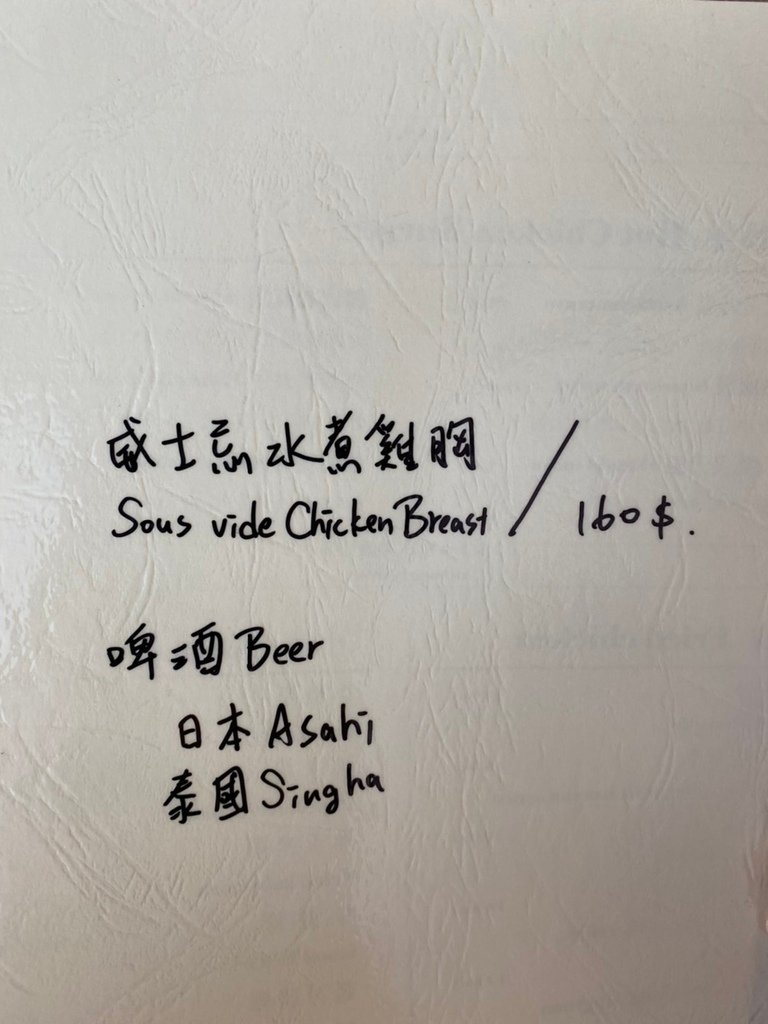 威士忌水煮雞胸
Sous vide Chicken Breast / 160$.
啤酒 Beer
日本 Asahi
泰國 Singha